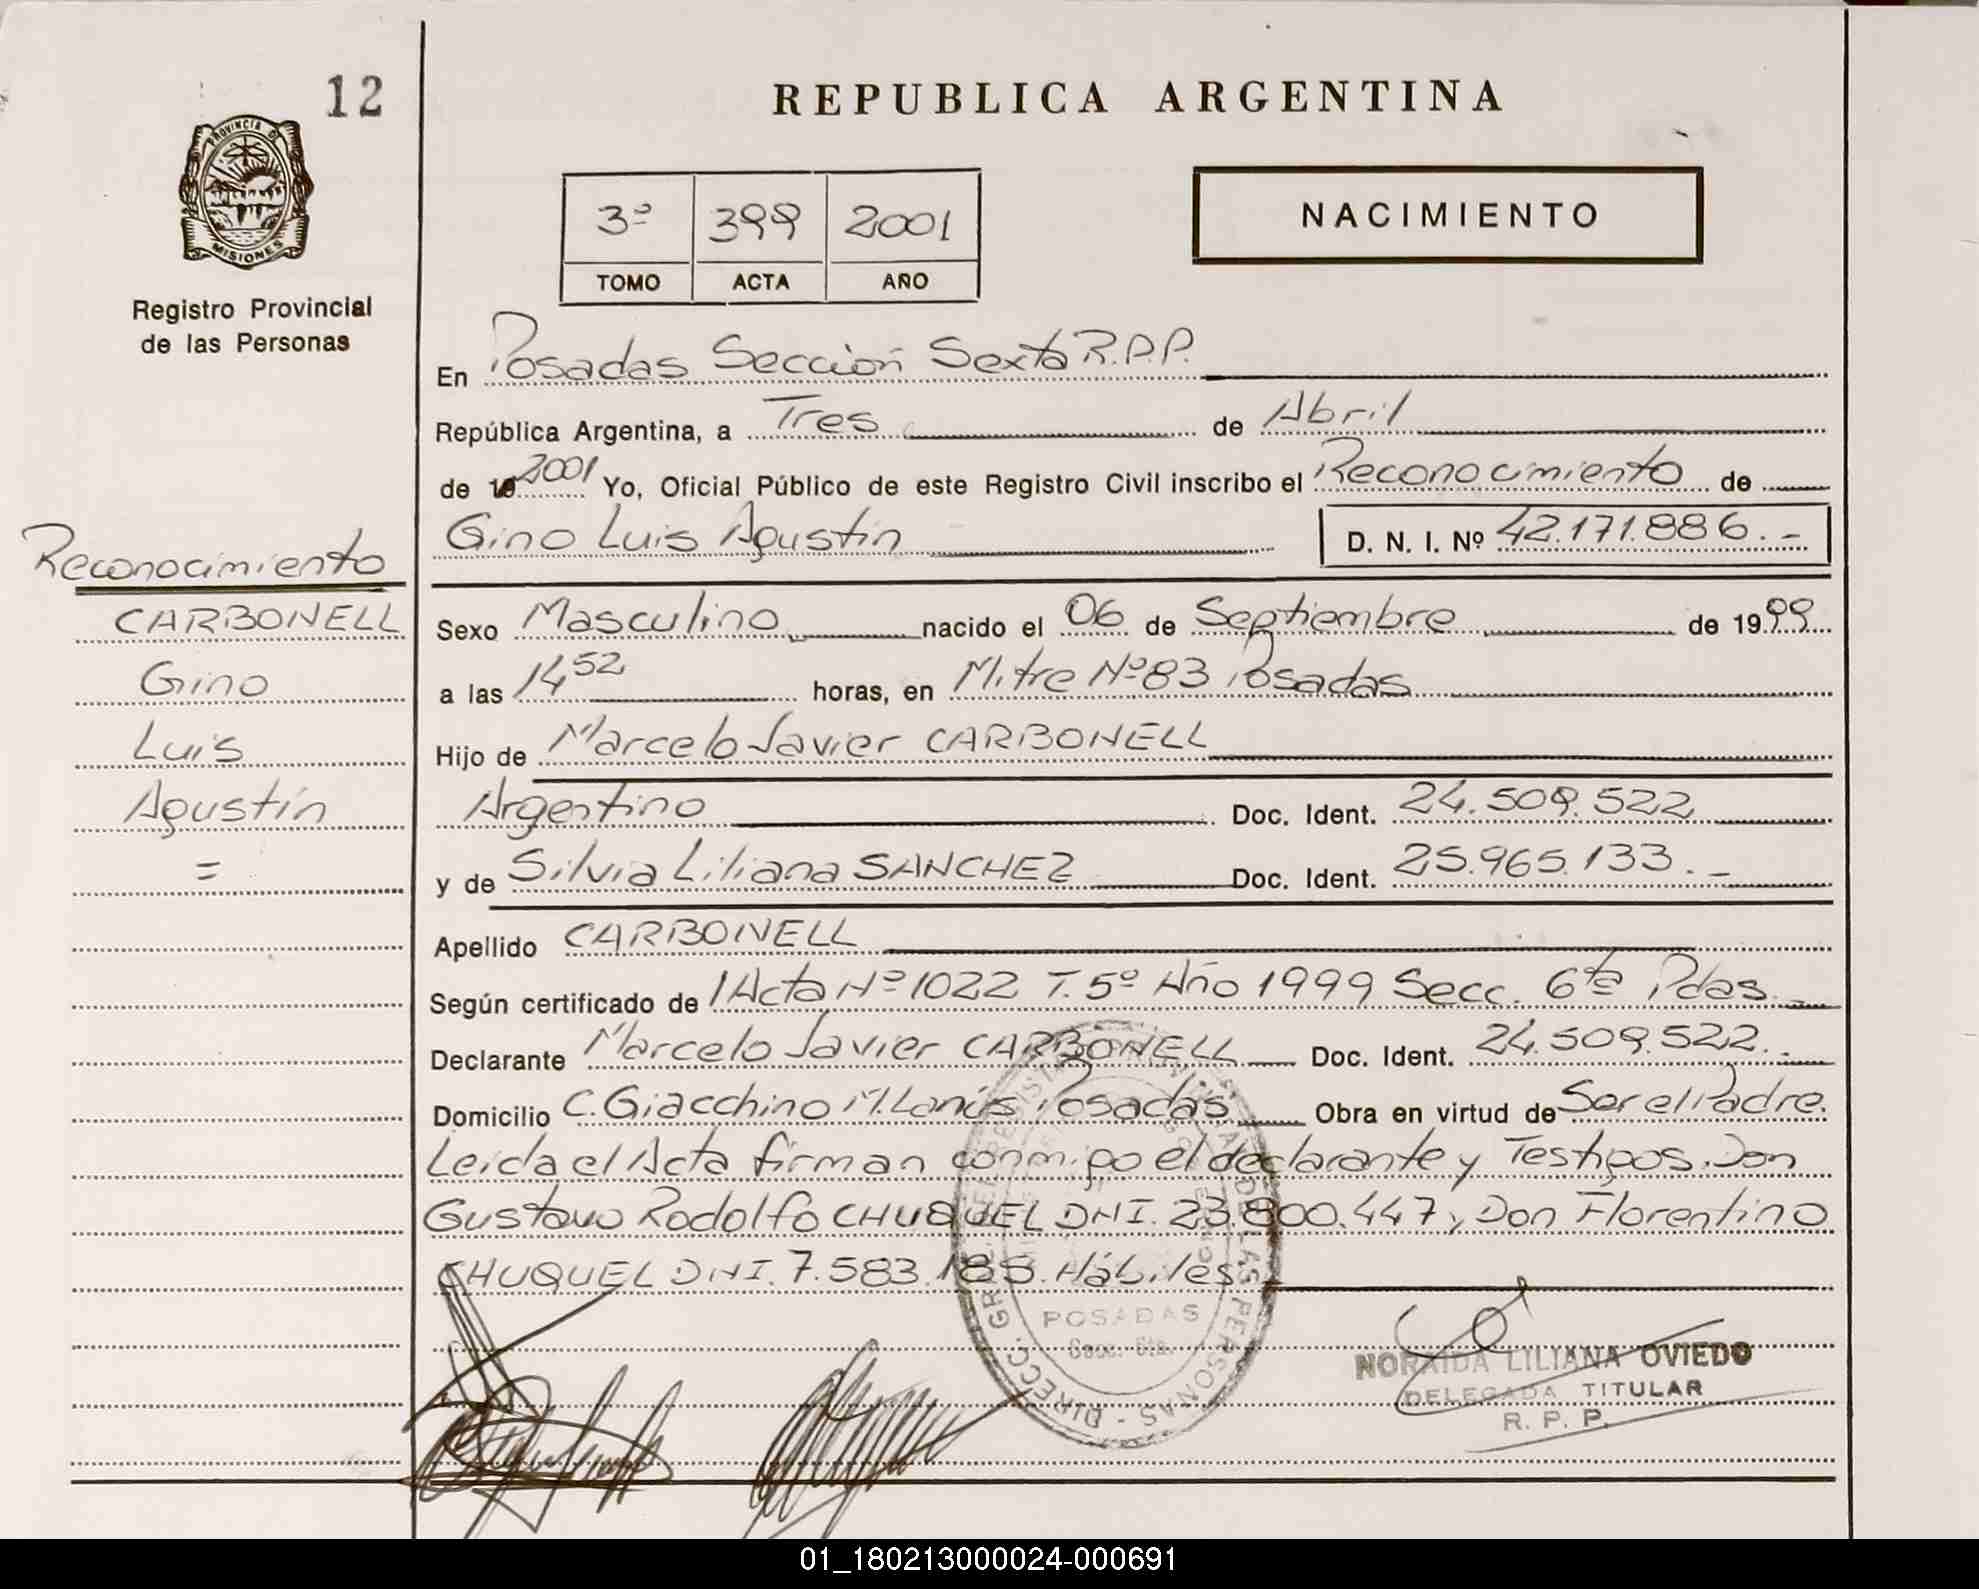 12
PROVINCIA DE
MISIONES
Registro Provincial
de las Personas
REPUBLICA ARGENTINA
3º 399 2001
TOMO ACTA AÑO
NACIMIENTO
En Posadas Sección Sexta R.P.P.
República Argentina, a Tres de Abril
de 19 2001 Yo, Oficial Público de este Registro Civil inscribo el Reconocimiento de
Gino Luis Agustín D. N. I. Nº 42.171.886.-
Reconocimiento
CARBONELL
Gino
Luis
Agustín
=
Sexo Masculino nacido el 06 de Septiembre de 1999
a las 14 52 horas, en Mitre Nº 83 Posadas
Hijo de Marcelo Javier CARBONELL
Argentino Doc. Ident. 24.509.522
y de Silvia Liliana SANCHEZ Doc. Ident. 25.965.133.-
Apellido CARBONELL
Según certificado de Acta Nº 1022 T. 5º Año 1999 Secc. 6ta Pdas.
Declarante Marcelo Javier CARBONELL Doc. Ident. 24.509.522.-
Domicilio C. Giacchino M. Lanús Posadas Obra en virtud de Ser el Padre.
Leída el Acta firman conmigo el declarante y Testigos. Don
Gustavo Rodolfo CHUQUEL DNI. 23.800.447, Don Florentino
CHUQUEL DNI. 7.583.185. Hábiles
POSADAS
Secc. 6ta.
NORAIDA LILIANA OVIEDO
DELEGADA TITULAR
R. P. P.
01_180213000024-000691